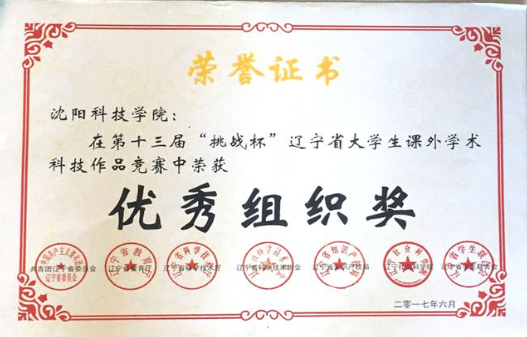 荣誉证书
沈阳科技学院：
在第十三届“挑战杯”辽宁省大学生课外学术
科技作品竞赛中荣获
优秀组织奖
共青团辽宁省委员会 辽宁省教育厅 辽宁省科学技术厅 辽宁省科学技术协会 辽宁省知识产权局 辽宁社会科学院 辽宁省学生联合会
二〇一七年六月